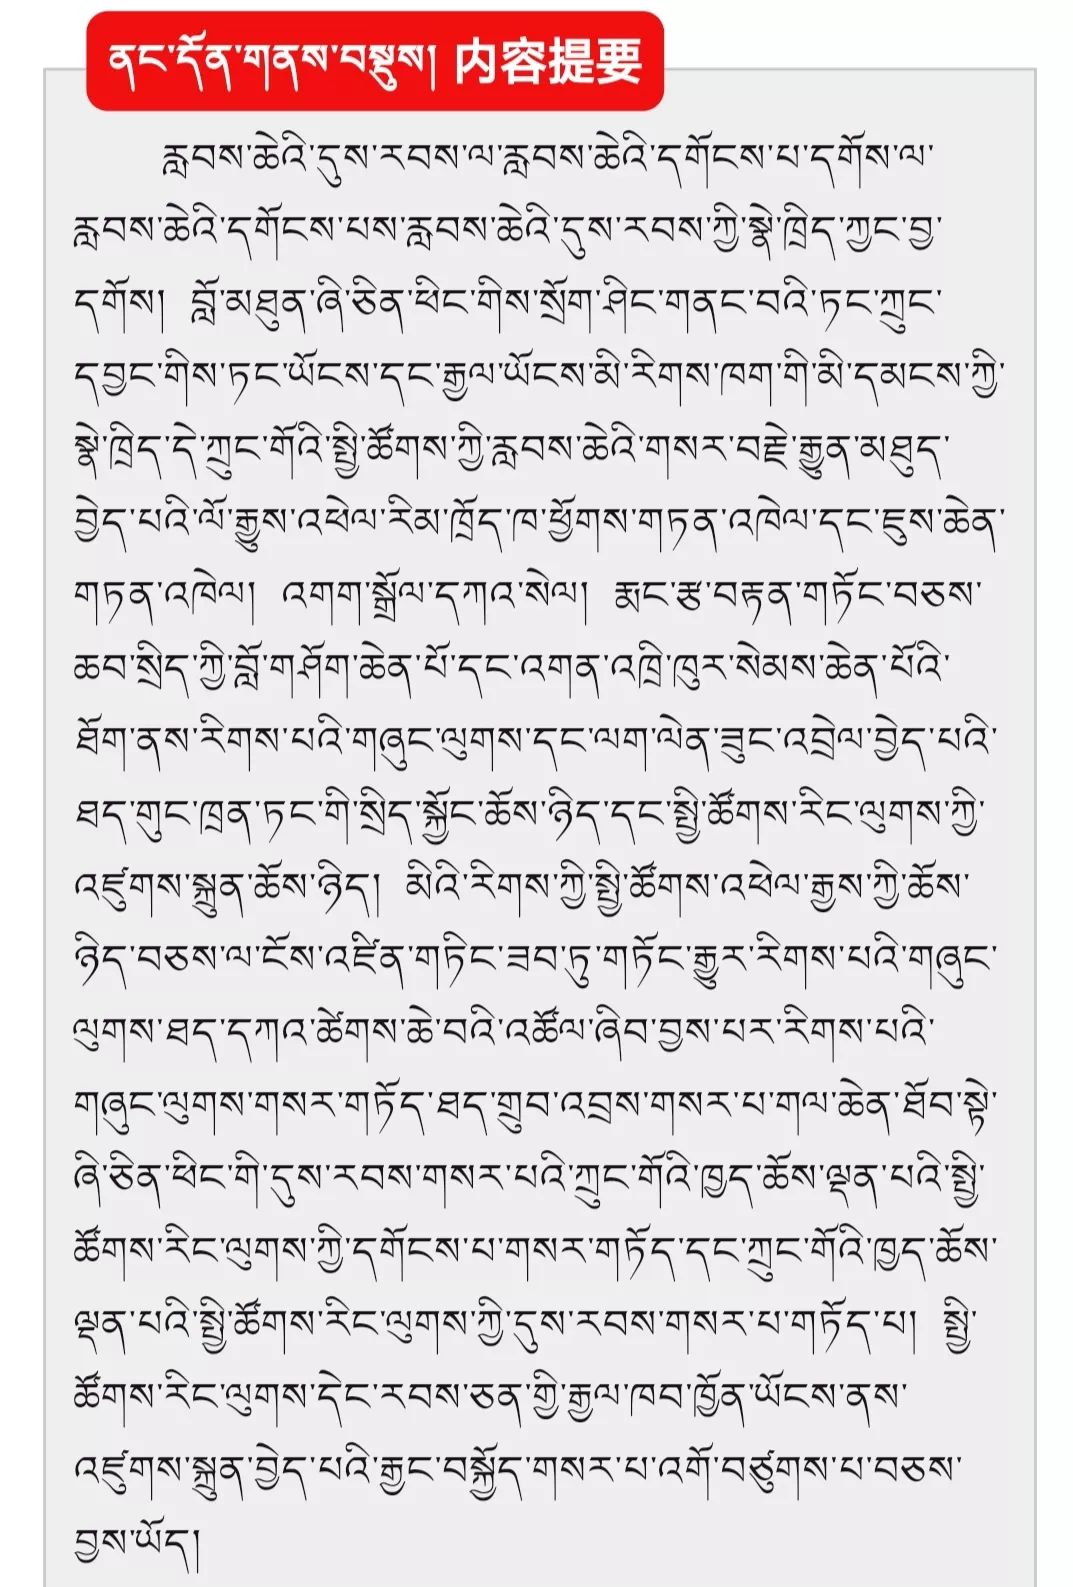 ནང་དོན་གནས་བསྡུས། 内容提要
རླབས་ཆེའི་དུས་རབས་ལ་རླབས་ཆེའི་དགོངས་པ་དགོས་ལ་
རླབས་ཆེའི་དགོངས་པས་རླབས་ཆེའི་དུས་རབས་ཀྱི་སྣེ་ཁྲིད་ཀྱང་བྱ་
དགོས། བློ་མཐུན་ཞི་ཅིན་ཕིང་གིས་སྲོག་ཤིང་གནང་བའི་ཏང་ཀྲུང་
དབྱང་གིས་ཏང་ཡོངས་དང་རྒྱལ་ཡོངས་མི་རིགས་ཁག་གི་མི་དམངས་ཀྱི་
སྣེ་ཁྲིད་དེ་ཀྲུང་གོའི་སྤྱི་ཚོགས་ཀྱི་རླབས་ཆེའི་གསར་བརྗེ་རྒྱུན་མཐུད་
བྱེད་པའི་ལོ་རྒྱུས་འཕེལ་རིམ་ཁྲོད་ཁ་ཕྱོགས་གཏན་འཁེལ་དང་ཇུས་ཆེན་
གཏན་འཁེལ། འགག་སྒྲོལ་དཀའ་སེལ། རྨང་རྩ་བརྟན་གཏོང་བཅས་
ཆབ་སྲིད་ཀྱི་བློ་གཤོག་ཆེན་པོ་དང་འགན་འཁྲི་ཁུར་སེམས་ཆེན་པོའི་
ཐོག་ནས་རིགས་པའི་གཞུང་ལུགས་དང་ལག་ལེན་ཟུང་འབྲེལ་བྱེད་པའི་
ཐད་གུང་ཁྲན་ཏང་གི་སྲིད་སྐྱོང་ཆོས་ཉིད་དང་སྤྱི་ཚོགས་རིང་ལུགས་ཀྱི་
འཛུགས་སྐྲུན་ཆོས་ཉིད། མིའི་རིགས་ཀྱི་སྤྱི་ཚོགས་འཕེལ་རྒྱས་ཀྱི་ཆོས་
ཉིད་བཅས་ལ་ངོས་འཛིན་གཏིང་ཟབ་ཏུ་གཏོང་རྒྱུར་རིགས་པའི་གཞུང་
ལུགས་ཐད་དཀའ་ཚེགས་ཆེ་བའི་འཚོལ་ཞིབ་བྱས་པར་རིགས་པའི་
གཞུང་ལུགས་གསར་གཏོད་ཐད་གྲུབ་འབྲས་གསར་པ་གལ་ཆེན་ཐོབ་སྟེ་
ཞི་ཅིན་ཕིང་གི་དུས་རབས་གསར་པའི་ཀྲུང་གོའི་ཁྱད་ཆོས་ལྡན་པའི་སྤྱི་
ཚོགས་རིང་ལུགས་ཀྱི་དགོངས་པ་གསར་གཏོད་དང་ཀྲུང་གོའི་ཁྱད་ཆོས་
ལྡན་པའི་སྤྱི་ཚོགས་རིང་ལུགས་ཀྱི་དུས་རབས་གསར་པ་གཏོད་པ། སྤྱི་
ཚོགས་རིང་ལུགས་དེང་རབས་ཅན་གྱི་རྒྱལ་ཁབ་ཁྱོན་ཡོངས་ནས་
འཛུགས་སྐྲུན་བྱེད་པའི་རྒྱང་བསྐྱོད་གསར་པ་འགོ་བཙུགས་པ་བཅས་
བྱས་ཡོད།